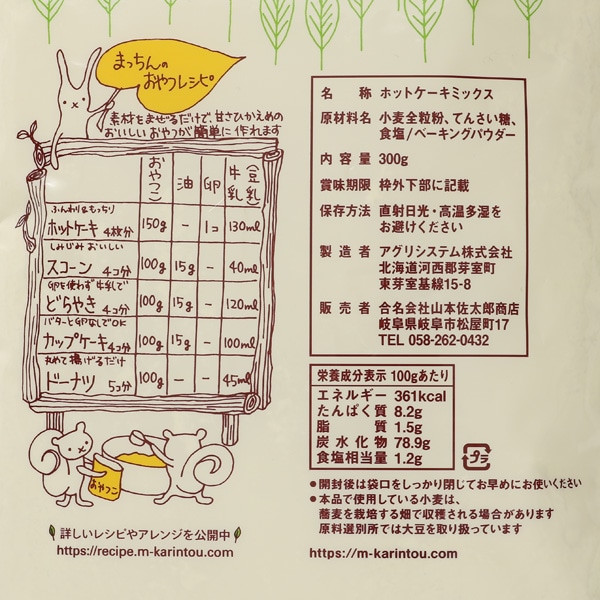 まっちんの
おやつレシピ
素材をまぜるだけで甘さひかえめの
おいしいおやつが簡単に作れます
おやつこ 油 卵 牛乳(豆乳)
ふんわり&もっちり
ホットケーキ 4枚分 150g - 1コ 130ml
しみじみおいしい
スコーン 4コ分 100g 15g - 40ml
卵を使わず牛乳で
どらやき 4コ分 100g - - 120ml
バターと卵なしでOK
カップケーキ 4コ分 100g 15g - 100ml
丸めて揚げるだけ
ドーナツ 5コ分 100g - - 45ml
おやつこ
詳しいレシピやアレンジを公開中
https://recipe.m-karintou.com
名称 ホットケーキミックス
原材料名 小麦全粒粉、てんさい糖、
食塩/ベーキングパウダー
内容量 300g
賞味期限 枠外下部に記載
保存方法 直射日光・高温多湿を
お避けください
製造者 アグリシステム株式会社
北海道河西郡芽室町
東芽室基線15-8
販売者 合名会社山本佐太郎商店
岐阜県岐阜市松屋町17
TEL 058-262-0432
栄養成分表示 100gあたり
エネルギー 361kcal
たんぱく質 8.2g
脂質 1.5g
炭水化物 78.9g
食塩相当量 1.2g
プラ
●開封後は袋口をしっかり閉じてお早めにお使いください
●本品で使用している小麦は、
蕎麦を栽培する畑で収穫される場合があります
原料選別所では大豆を取り扱っています
https://m-karintou.com